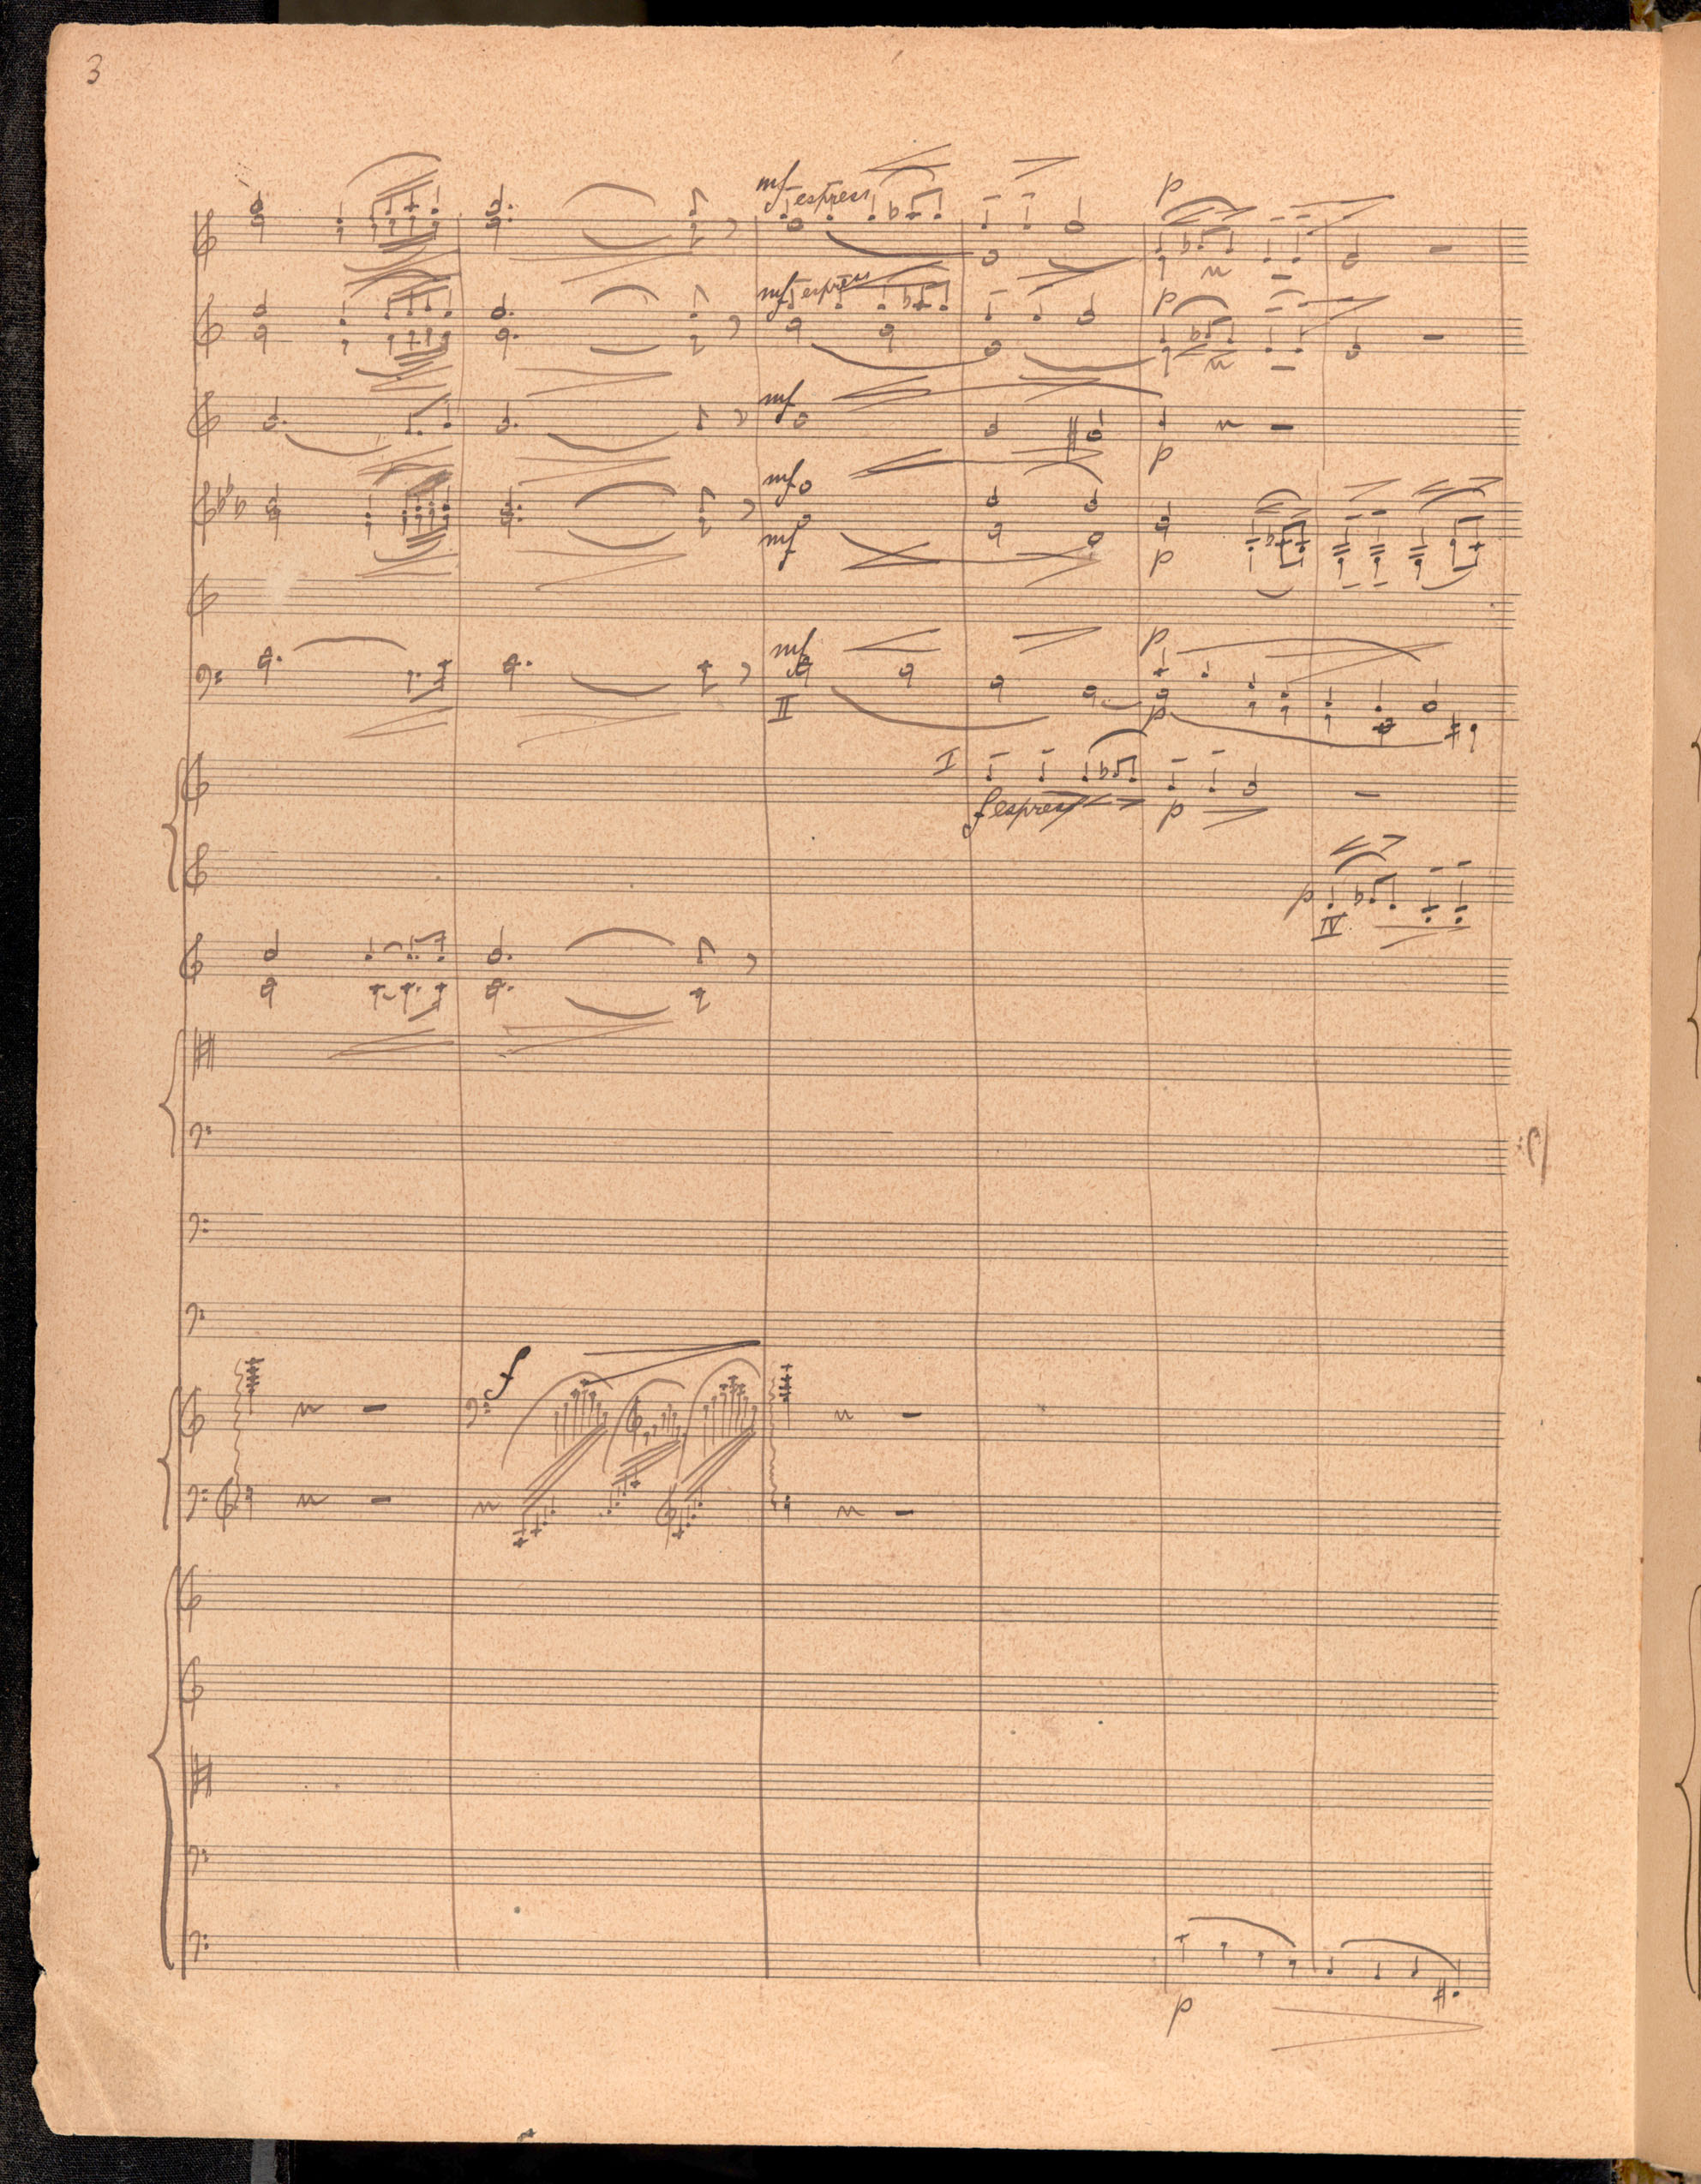 3
mf espress p
mf espress p
mf p
mf
mf p
mf p
II p
I
f espress p
p
IV
f
p